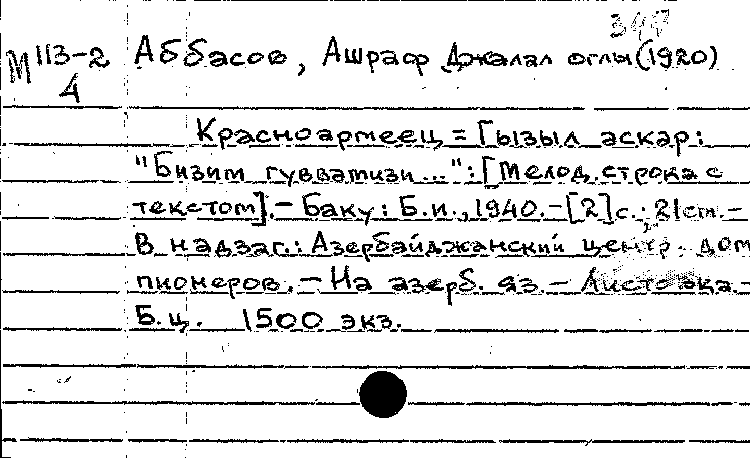 М 113-2 Аббасов, Ашраф Джалал оглы (1920)
4
Красноармеец = Гызыл аскар:
"Бизим гувватизи...":[Мелод. строка с
текстом].- Баку: Б.и., 1940.-[2]с.; 21см.-
В надзаг.: Азербайджанский центр. дом
пионеров.- На азерб. яз.- Листовка.-
Б.ц. 1500 экз.